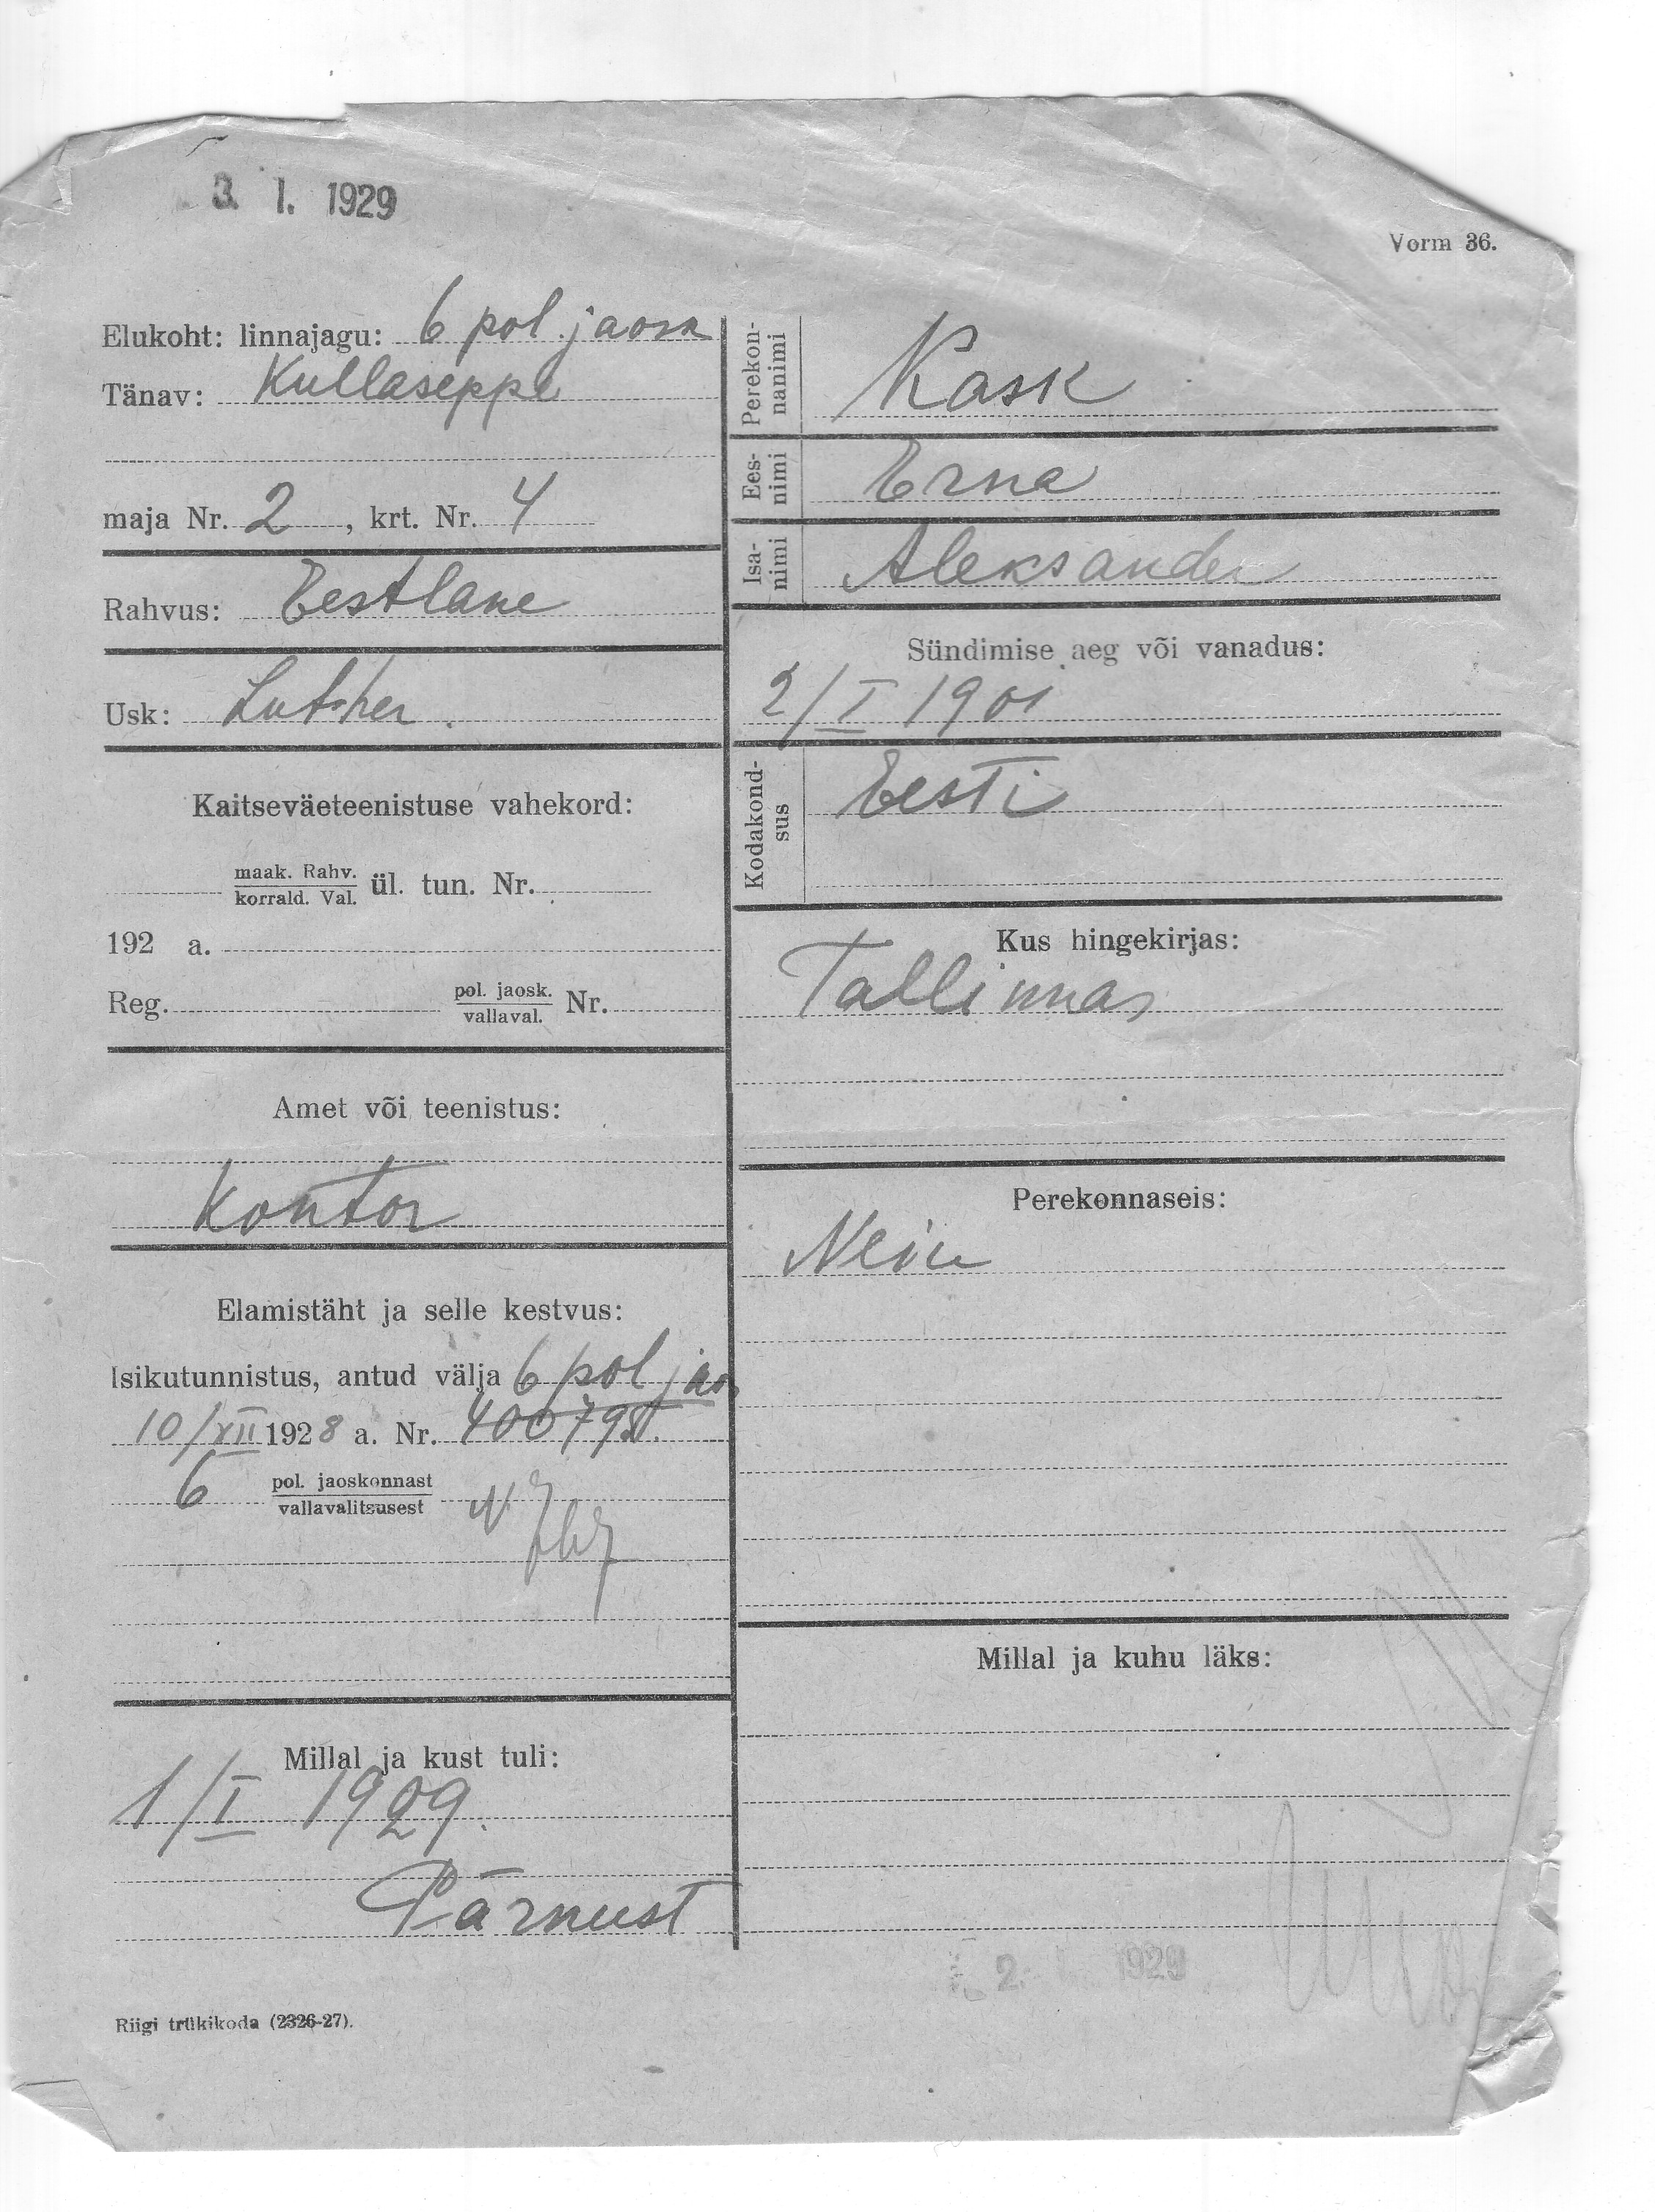 3. I. 1929
Vorm 36.
Elukoht: linnajagu: 6 pol. jaosk
Tänav: Kullaseppa
maja Nr. 2, krt. Nr. 4
Rahvus: Eestlane
Usk: Luther.
Kaitseväeteenistuse vahekord:
maak. Rahv.
korrald. Val. ül. tun. Nr.
192 a.
Reg. pol. jaosk. Nr.
vallaval.
Amet või teenistus:
Kontor
Elamistäht ja selle kestvus:
Isikutunnistus, antud välja 6 pol jao
10/XII 1928 a. Nr.
6 pol. jaoskonnast
vallavalitsusest
Millal ja kust tuli:
1/I 1929.
Pärnust
Riigi trükikoda (2326-27).
Perekon-
nanimi Kask
Ees-
nimi Erna
Isa-
nimi Aleksander
Sündimise aeg või vanadus:
2/I 1901
Kodakond-
sus Eesti
Kus hingekirjas:
Tallinnas
Perekonnaseis:
Neiu
Millal ja kuhu läks:
2. 1929